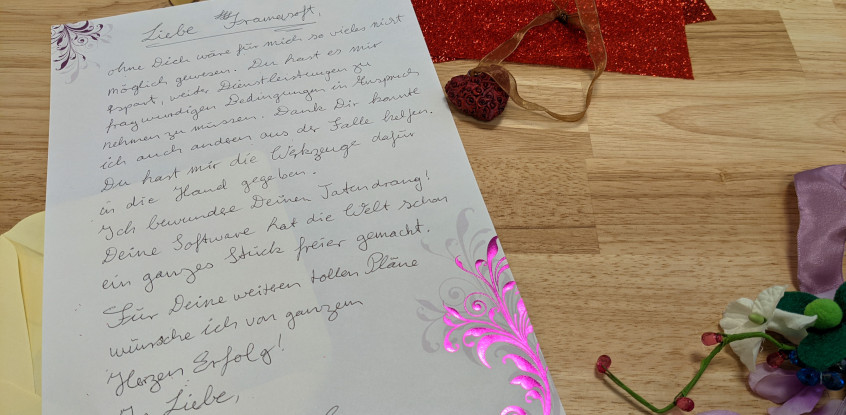 Liebe Framasoft,
ohne Dich wäre für mich so vieles nicht
möglich gewesen. Du hast es mir
erspart, weiter Dienstleistungen zu
fragwürdigen Bedingungen in Anspruch
nehmen zu müssen. Dank Dir konnte
ich auch anderen aus der Falle helfen.
Du hast mir die Werkzeuge dafür
in die Hand gegeben.
Ich bewundere Deinen Tatendrang!
Deine Software hat die Welt schon
ein ganzes Stück freier gemacht.
Für Deine weiteren tollen Pläne
wünsche ich von ganzem
Herzen Erfolg!
In Liebe,